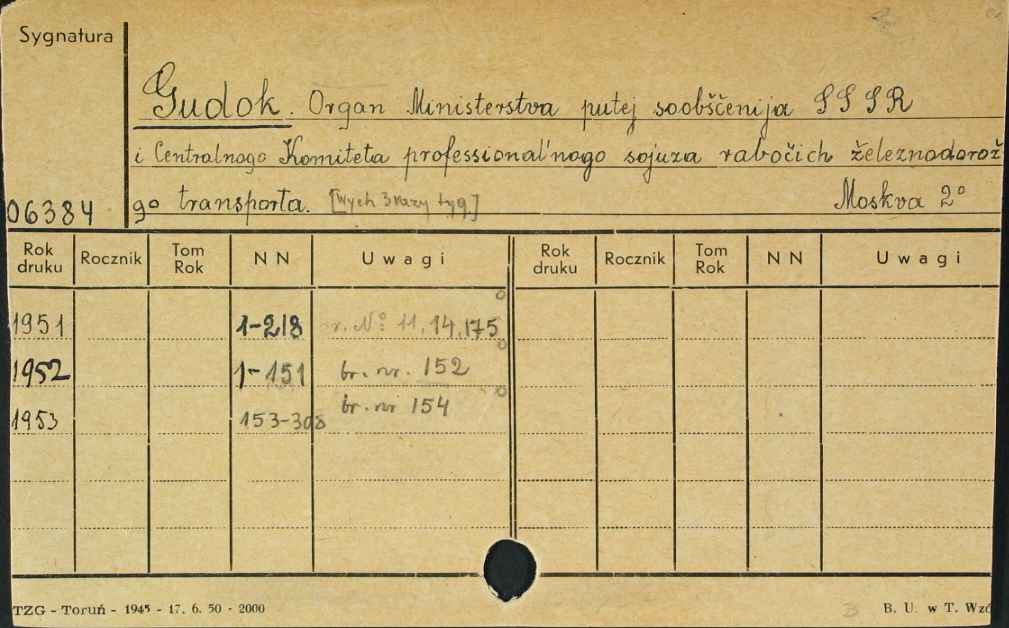 Sygnatura
Gudok. Organ Ministerstva putej soobščenija SSSR
i Centralnogo Komiteta professional'nogo sojuza rabočich železnodorož
06384 go transporta. [Wych 3 razy tyg.] Moskva 2°
Rok druku Rocznik Tom Rok NN Uwagi Rok druku Rocznik Tom Rok NN Uwagi
1951 1-218 Nº 11, 14, 175
1952 1-151 br. nr. 152
1953 153-308 br. nr 154
TZG - Toruń - 1945 - 17. 6. 50 - 2000 B B. U. w T. Wzó